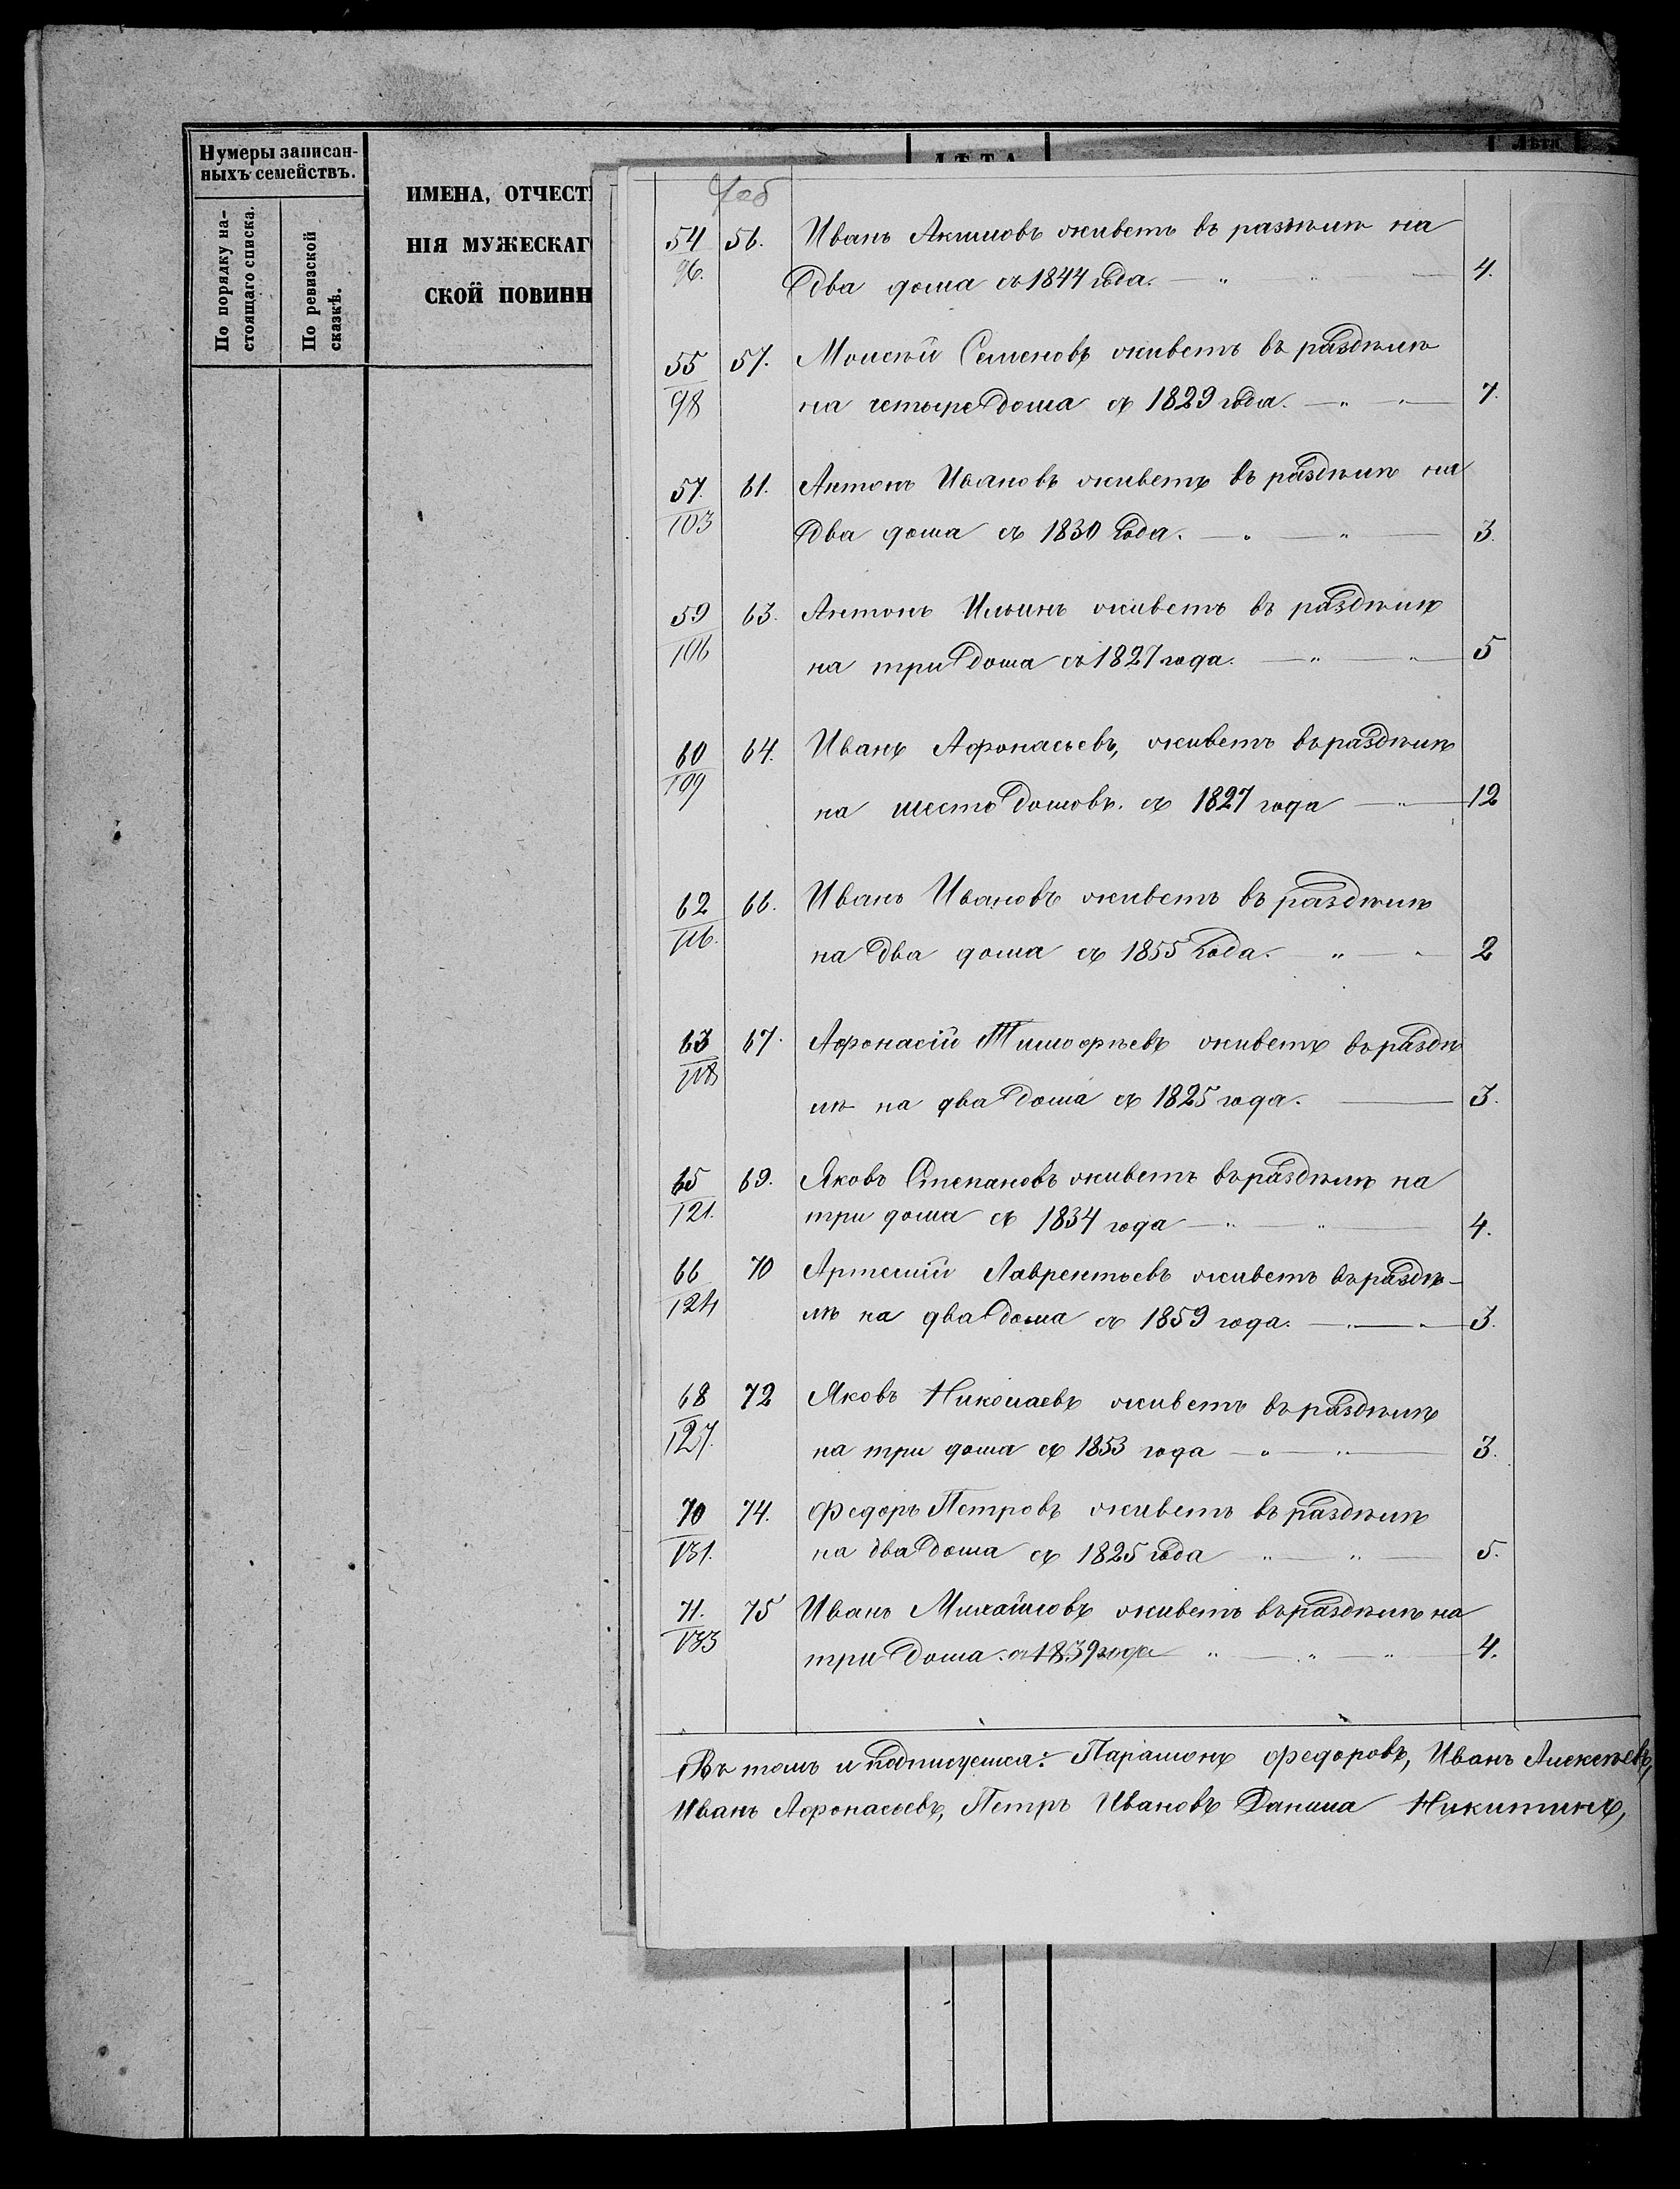 Нумеры записан-
ныхъ семействъ.
По порядку на-
стоящаго списка.
По ревизской
сказкѣ.
ИМЕНА, ОТЧЕСТ
НІЯ МУЖЕСКАГ
СКОЙ ПОВИНН
ЛѢТА
Лѣта
54 56. Иванъ Акимовъ живетъ въ раздѣлѣ на
96. два дома съ 1844 года. 4.
55 57. Моисей Семеновъ живетъ въ раздѣлѣ
98 на четыре дома съ 1829 года. 7.
57. 61. Антонъ Ивановъ живетъ въ раздѣлѣ на
103 два дома съ 1830 года. 3.
59 63. Антонъ Ильинъ живетъ въ раздѣлѣ
106 на три дома съ 1827 года. 5
60 64. Иванъ Афонасьевъ, живетъ въ раздѣлѣ
109 на шесть домовъ. съ 1827 года 12
62 66. Иванъ Ивановъ живетъ въ раздѣлѣ
116. на два дома съ 1855 года. 2
63 67. Афонасій Тимофѣевъ живетъ въ раздѣ
118 лѣ на два дома съ 1825 года. 3.
65 69. Яковъ Степановъ живетъ въ раздѣлѣ на
121. три дома съ 1834 года 4.
66 70 Артемій Лаврентьевъ живетъ въ раздѣ-
124 лѣ на два дома съ 1859 года. 3.
68 72 Яковъ Николаевъ живетъ въ раздѣлѣ
127. на три дома съ 1853 года 3.
70 74. Федоръ Петровъ живетъ въ раздѣлѣ
131. на два дома съ 1825 года 5.
71. 75 Иванъ Михайловъ живетъ въ раздѣлѣ на
133 три дома. съ 1839 года 4.
Въ томъ и подписуемся: Парамонъ Федоровъ, Иванъ Алексѣевъ,
Иванъ Афонасьевъ, Петръ Ивановъ Данила Никитинъ,